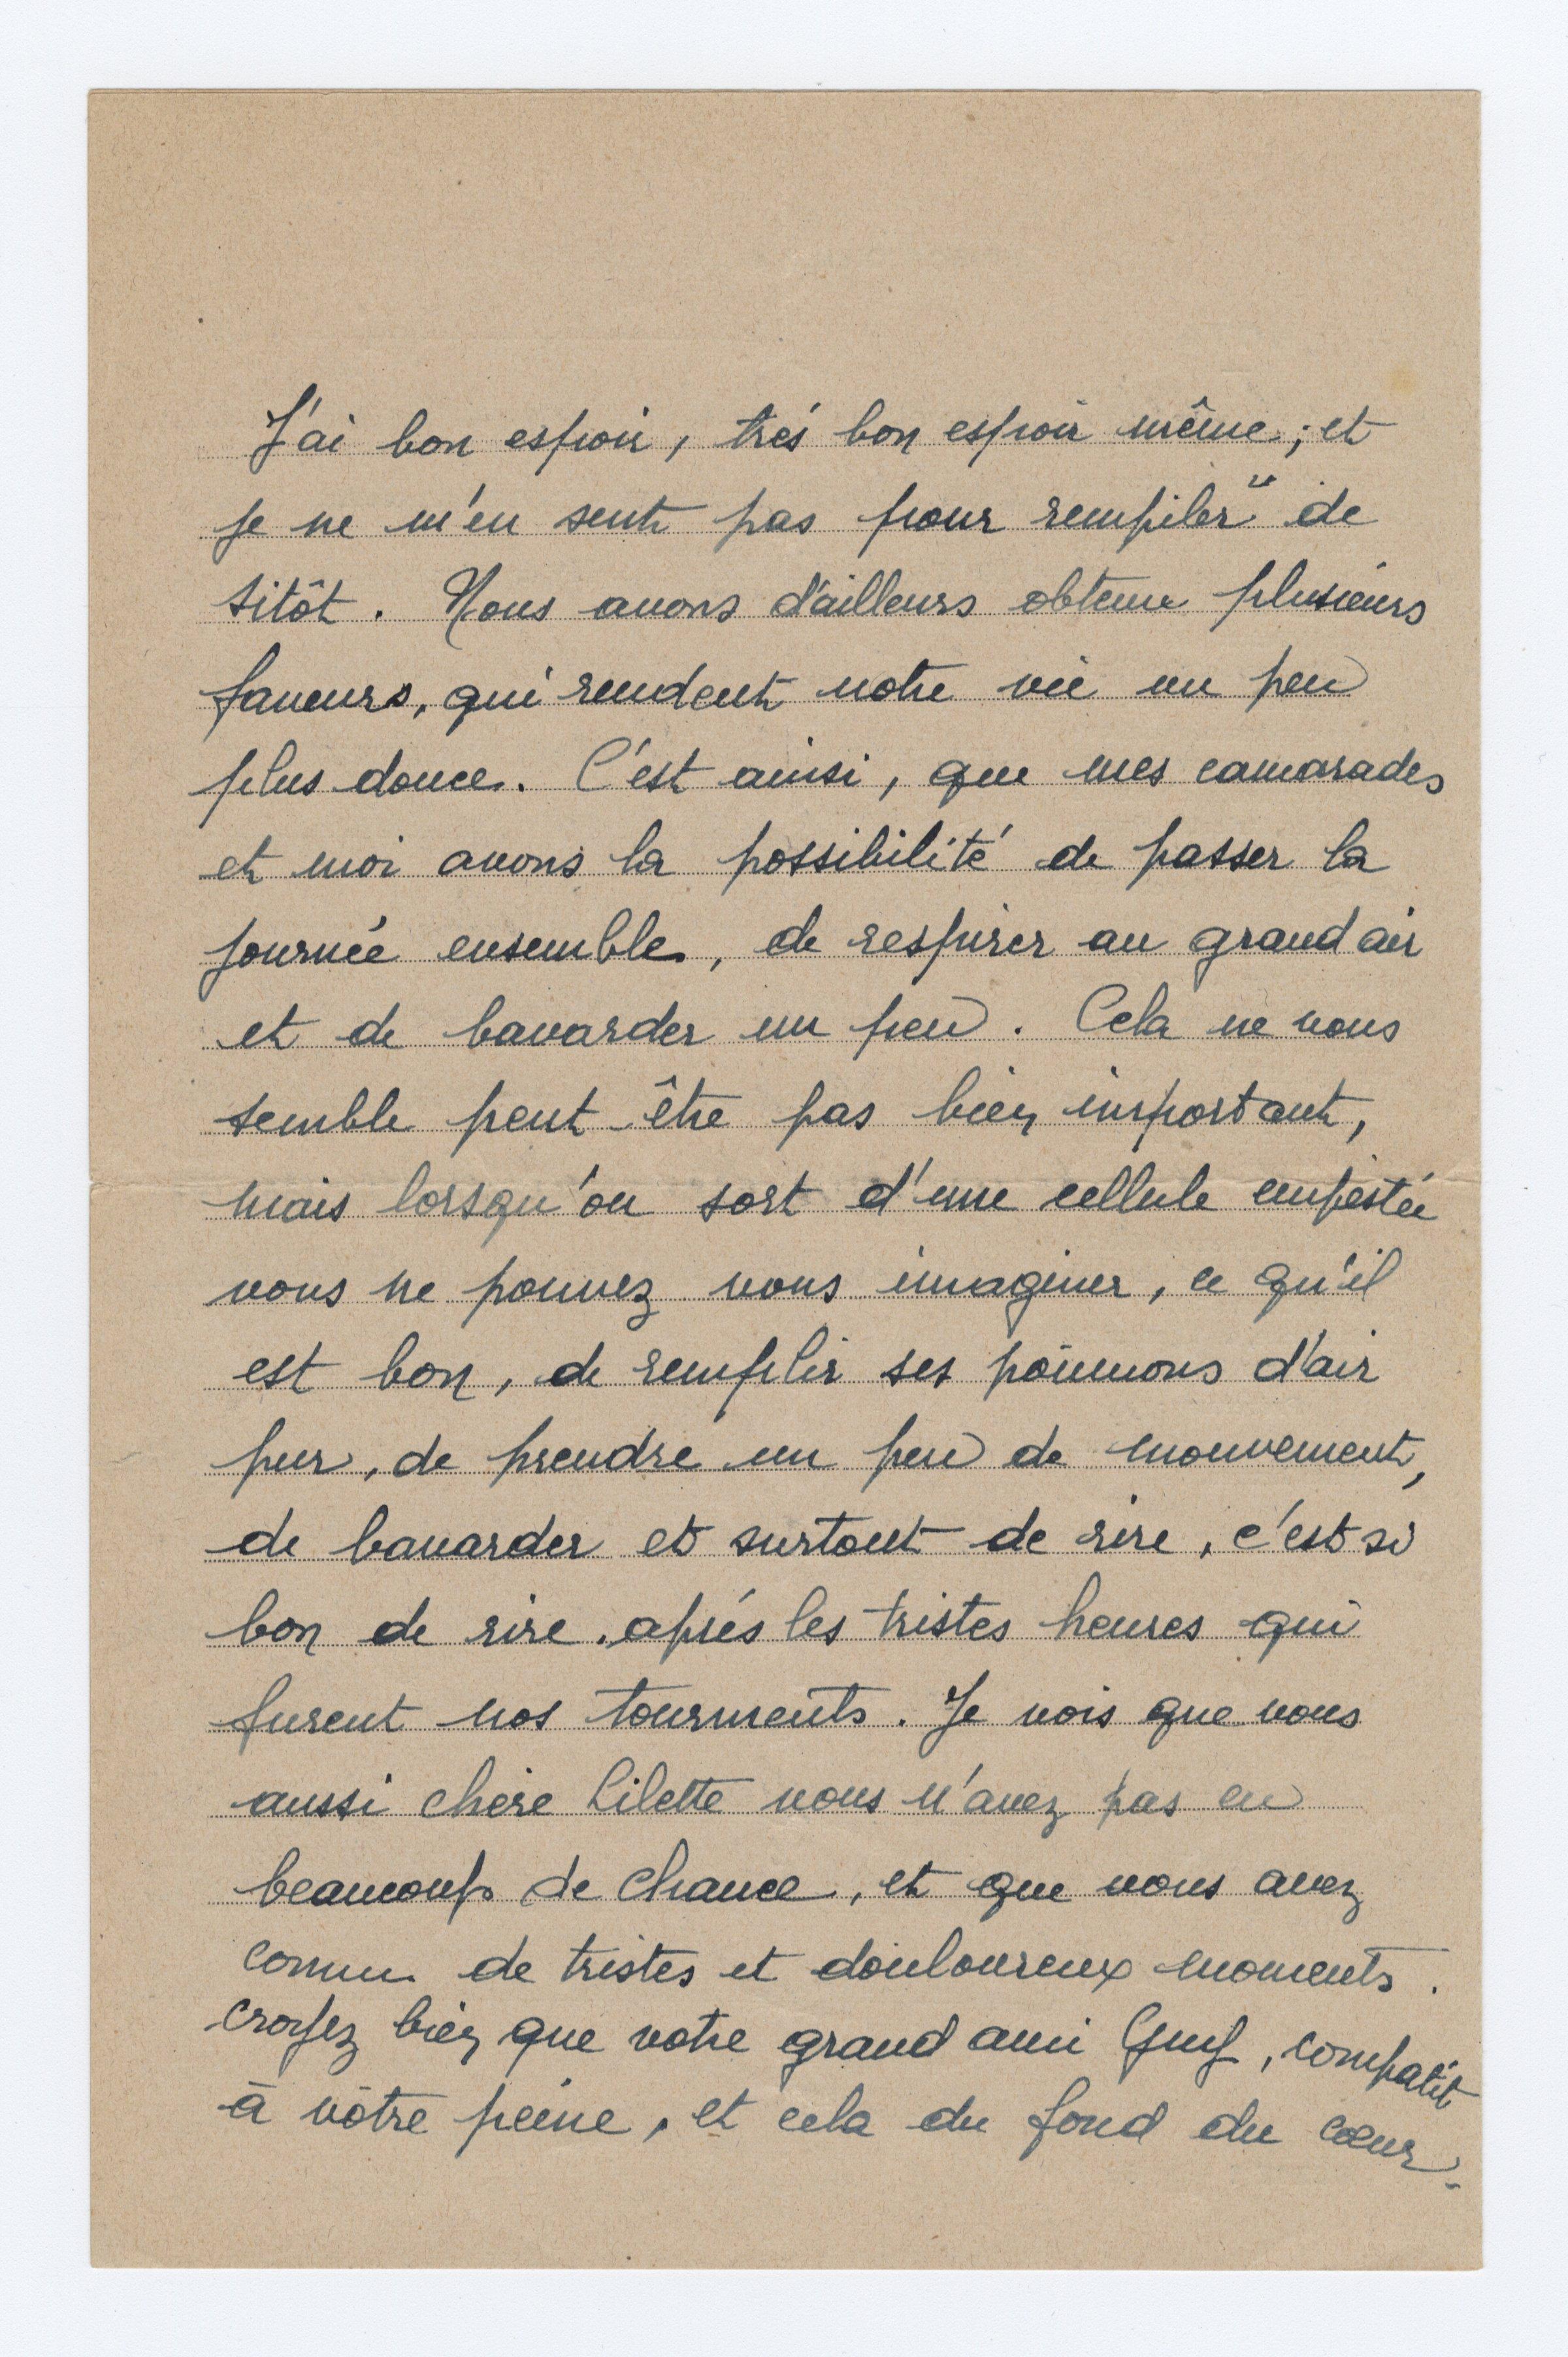 J'ai bon espoir, très bon espoir même; et
je ne m'en sent pas pour rempiler" de
sitôt. Nous avons d'ailleurs obtenu plusieurs
faveurs, qui rendent notre vie un peu
plus douce. C'est ainsi, que mes camarades
et moi avons la possibilité de passer la
journée ensemble, de respirer au grand air
et de bavarder un peu. Cela ne vous
semble peut-être pas bien important,
mais lorsqu'on sort d'une cellule empestée
vous ne pouvez vous imaginer, ce qu'il
est bon, de remplir ses poumons d'air
pur, de prendre un peu de mouvement,
de bavarder et surtout de rire, c'est si
bon de rire, après les tristes heures qui
furent nos tourments. Je vois que vous
aussi chère Lilette vous n'avez pas eu
beaucoup de chance, et que vous avez
connu de tristes et douloureux moments.
Croyez bien que votre grand ami Guy, compatit
à votre peine, et cela du fond du cœur.